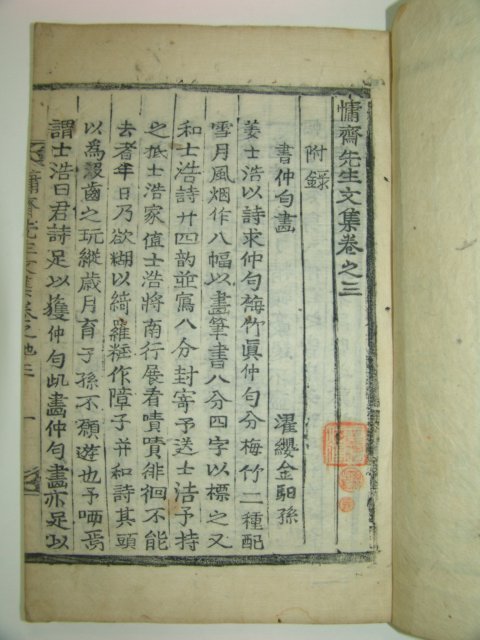 慵齋先生文集卷之三
附錄
書仲勻畵
濯纓金馹孫
姜士浩以詩求仲勻梅竹眞仲勻分梅竹二種配
雪月風烟作八幅以畵筆書八分四字以標之又
和士浩詩廿四韵並寫八分封寄予送士浩予持
之抵士浩家值士浩將南行展看嘖嘖徘徊不能
去者年日乃欲糊以綺羅粧作障子并和詩其頭
以爲齠齒之玩縱歲月育子孫不願遊也予哂焉
謂士浩曰君詩足以獲仲勻畵仲勻畵亦足以